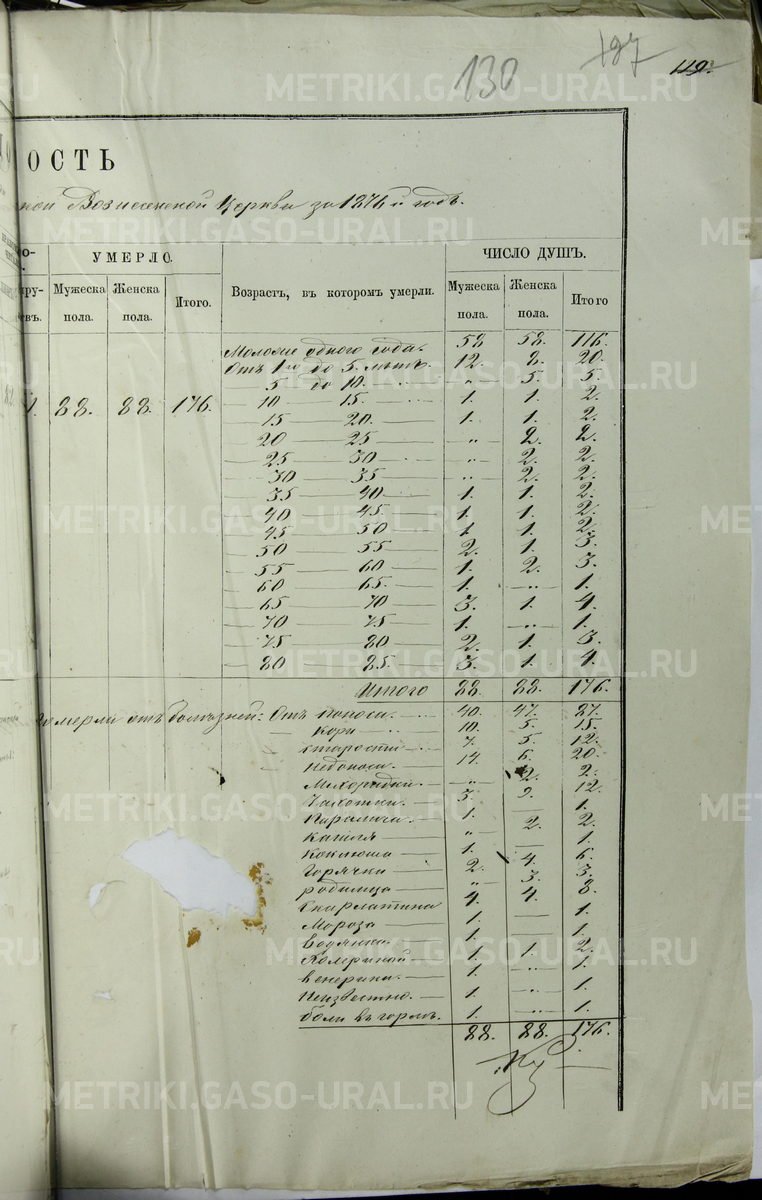 130
127
119.
ОСТЬ
ной Вознесенской Церкви за 1876й годъ.
УМЕРЛО.
ЧИСЛО ДУШЪ.
Мужеска пола. Женска пола. Итого. Возрастъ, въ которомъ умерли. Мужеска пола. Женска пола. Итого
88. 88. 176.
Моложе одного года. 58 58. 116.
Отъ 1го до 5. лѣтъ. 12. 8. 20.
5 до 10. „ 5. 5.
10 15. 1. 1. 2.
15 20. 1. 1. 2.
20 25 „ 2. 2.
25 30 „ 2. 2.
30 35 „ 2. 2.
35 40 1. 1. 2.
40 45. 1. 1. 2.
45 50 1. 1. 2.
50 55 2. 1. 3.
55 60 1. 2. 3.
60 65. 1. „ 1.
65 70 3. 1. 4.
70 75 1. „ 1.
75 80 2. 1. 3.
80 85. 3. 1. 4.
Итого 88. 88. 176.
Умерли отъ болѣзней: Отъ поноса. 40. 47. 87.
Кори 10. 5. 15.
старости 7. 5. 12.
Недоноси. 14. 6. 20.
Лихорадки. „ 2. 2.
Чахотки. 3. 9. 12.
Паралича. 1. — 1.
кашля „ 2. 2.
Коклюша 1. — 1.
Горячки 2. 4. 6.
родимца „ 3. 3.
Скарлатина 4. 4. 8.
Мороза 1. — 1.
Водянка. 1. — 1.
Холериной 1. 1. 2.
венерика. 1. „ 1.
Неизвестно. 1. „ 1.
боли въ горлѣ. 1. „ 1.
88. 88. 176.
METRIKI.GASO-URAL.RU